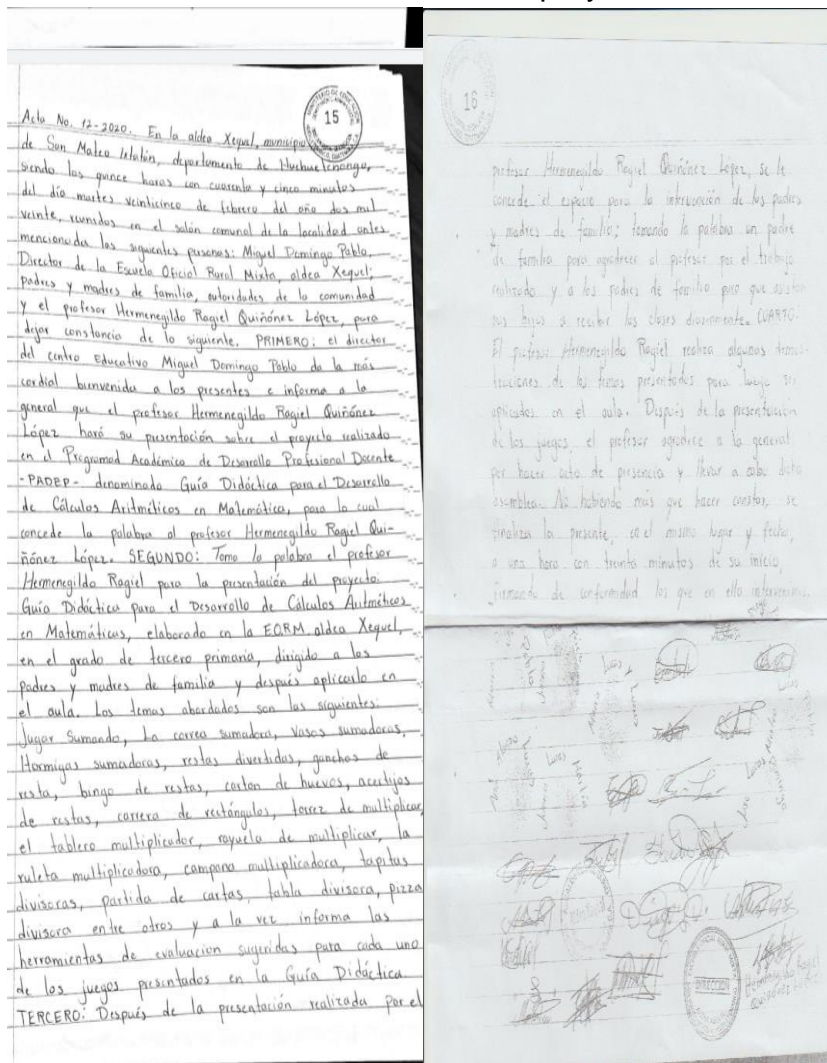 15
Acta No. 12-2020. En la aldea Xequel, municipio
de San Mateo Ixtatán, departamento de Huehuetenango,
siendo las quince horas con cuarenta y cinco minutos
del día martes veinticinco de febrero del año dos mil
veinte, reunidos en el salón comunal de la localidad antes
mencionada las siguientes personas: Miguel Domingo Pablo,
Director de la Escuela Oficial Rural Mixta, aldea Xequel;
padres y madres de familia, autoridades de la comunidad
y el profesor Hermenegildo Rogiel Quiñónez López, para
dejar constancia de lo siguiente. PRIMERO: el director
del centro Educativo Miguel Domingo Pablo da la más
cordial bienvenida a los presentes e informa a la
general que el profesor Hermenegildo Rogiel Quiñónez
López hará su presentación sobre el proyecto realizado
en el Programad Académico de Desarrollo Profesional Docente
-PADEP- denominado Guía Didáctica para el Desarrollo
de Cálculos Aritméticos en Matemática, para la cual
concede la palabra al profesor Hermenegildo Rogiel Qui-
ñónez López. SEGUNDO: Toma la palabra el profesor
Hermenegildo Rogiel para la presentación del proyecto:
Guía Didáctica para el Desarrollo de Cálculos Aritméticos
en Matemáticas, elaborado en la EORM aldea Xequel,
en el grado de tercero primaria, dirigido a los
padres y madres de familia y después aplicarlo en
el aula. Los temas abordados son los siguientes:
Jugar Sumando, La correa sumadora, Vasos sumadoras,
Hormigas sumadoras, restas divertidas, ganchos de
resta, bingo de restas, carton de huevos, acertijos
de restas, carrera de rectángulos, torrez de multiplicar,
el tablero multiplicador, rayuela de multiplicar, la
ruleta multiplicadora, campana multiplicadora, tapitas
divisoras, partida de cartas, tabla divisora, pizza
divisora entre otros y a la vez informa las
herramientas de evaluación sugeridas para cada uno
de los juegos presentados en la Guía Didáctica
TERCERO: Después de la presentación realizada por el
16
profesor Hermenegildo Rogiel Quiñónez López, se le
concede el espacio para la intervención de los padres
y madres de familia; tomando la palabra un padre
de familia para agradecer al profesor por el trabajo
realizado y a los padres de familia para que asistan
sus hijos a recibir las clases diariamente. CUARTO:
El profesor Hermenegildo Rogiel realiza algunas demos-
traciones de los temas presentados para luego ser
aplicados en el aula. Después de la presentación
de los juegos, el profesor agradece a la general
por hacer acto de presencia y llevar a cabo dicha
asamblea. No habiendo más que hacer constar, se
finaliza la presente, en el mismo lugar y fecha,
a una hora con treinta minutos de su inicio,
firmando de conformidad los que en ella intervenimos.
DIRECCION
Hermenegildo Rogiel
Quiñónez López